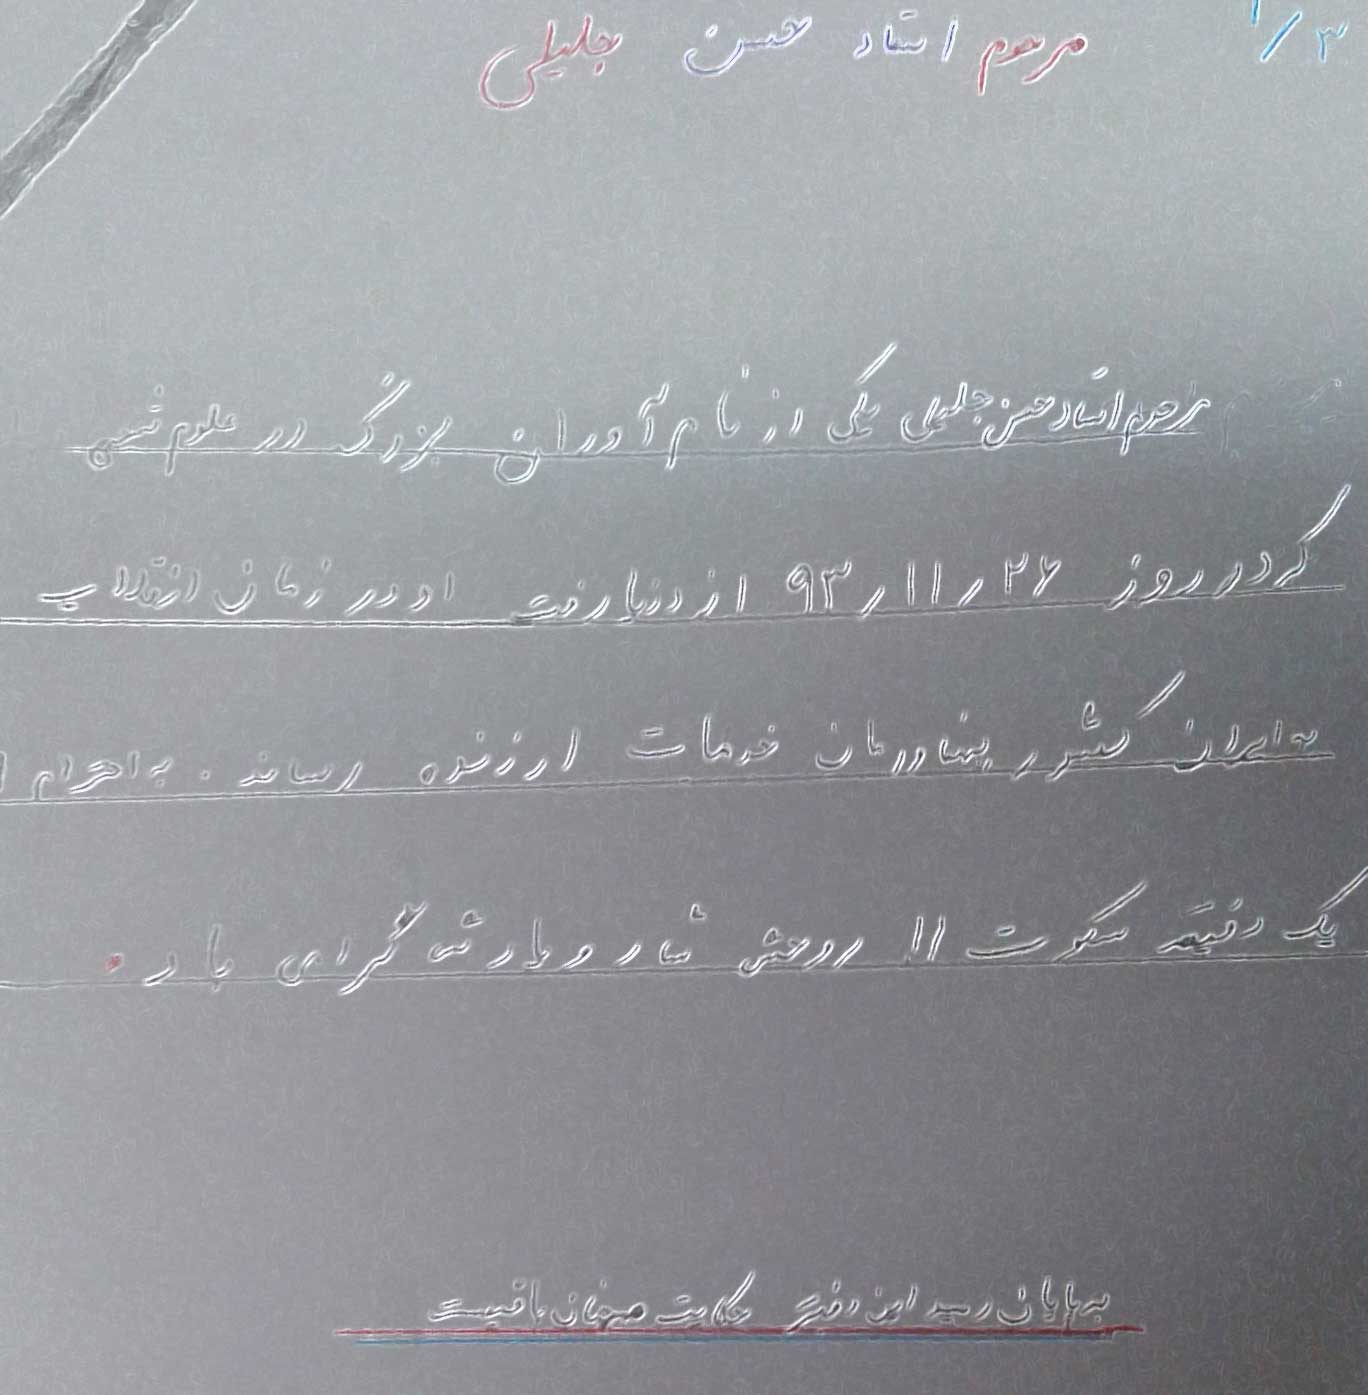 ۳/۱
مرحوم استاد حسن جلیلی
مرحوم استاد حسن جلیلی یکی از نام آوران بزرگ در علوم شیمی
که در روز ۲۶ ر ۱۱ ر ۹۳ از دنیا رفت او در زمان انقلاب
به ایران کشور پهناورمان خدمات ارزنده رساند . به احترام
یک دقیقه سکوت !! روحش شاد و یادش گرامی باد .
به پایان رسید این دفتر حکایت همچنان باقیست